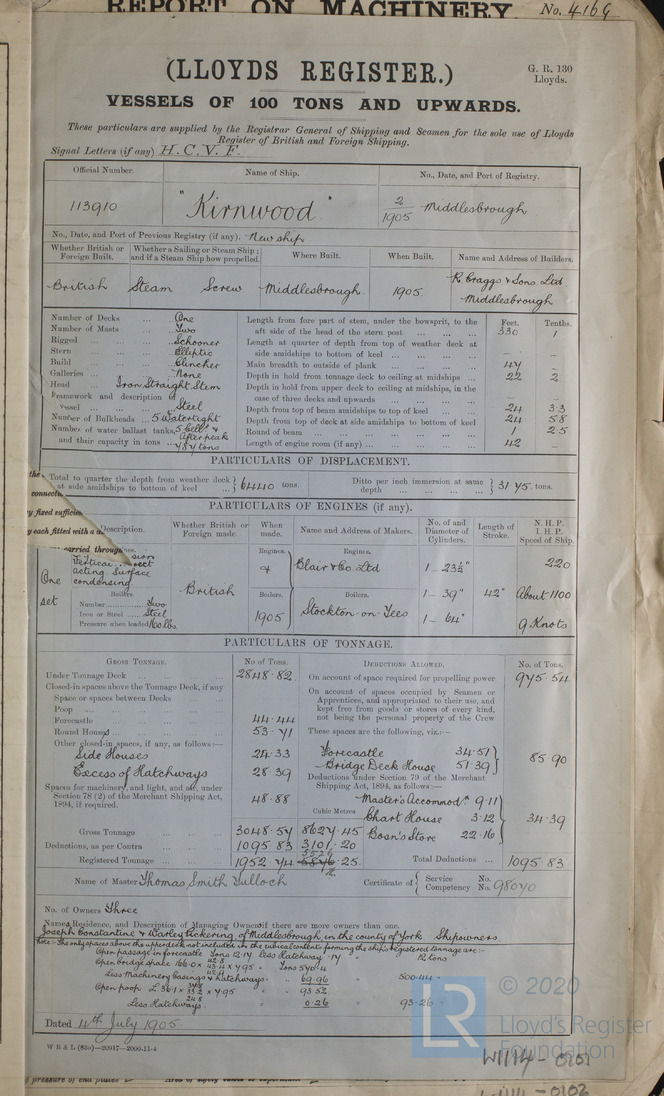 REPORT ON MACHINERY. No. 4169
(LLOYDS REGISTER.)
G. R. 130
Lloyds.
VESSELS OF 100 TONS AND UPWARDS.
These particulars are supplied by the Registrar General of Shipping and Seamen for the sole use of Lloyds
Register of British and Foreign Shipping.
Signal Letters (if any) H.C.V.F.
Official Number. Name of Ship. No., Date, and Port of Registry.
113910 "Kirnwood" 2/1905 Middlesbrough
No., Date, and Port of Previous Registry (if any). New ship
Whether British or Foreign Built. Whether a Sailing or Steam Ship; and if a Steam Ship how propelled. Where Built. When Built. Name and Address of Builders.
British Steam Screw Middlesbrough 1905 R. Craggs & Sons Ltd Middlesbrough
Number of Decks ... One
Number of Masts ... Two
Rigged ... Schooner
Stern ... Elliptic
Build ... Clincher
Galleries ... None
Head Iron Straight Stem
Framework and description of vessel ... Steel
Number of Bulkheads ... 5 Watertight
Number of water ballast tanks, 5 Cell. & After peak
and their capacity in tons ... 484 tons
Feet. Tenths.
Length from fore part of stem, under the bowsprit, to the aft side of the head of the stern post ... 330 1
Length at quarter of depth from top of weather deck at side amidships to bottom of keel ... - -
Main breadth to outside of plank ... 47 -
Depth in hold from tonnage deck to ceiling at midships ... 22 2
Depth in hold from upper deck to ceiling at midships, in the case of three decks and upwards ... - -
Depth from top of beam amidships to top of keel ... 24 33
Depth from top of deck at side amidships to bottom of keel 24 58
Round of beam ... 1 25
Length of engine room (if any) ... 42 -
PARTICULARS OF DISPLACEMENT.
Total to quarter the depth from weather deck at side amidships to bottom of keel ... 6440 tons. Ditto per inch immersion at same depth ... 31.75 tons.
PARTICULARS OF ENGINES (if any).
Description. Whether British or Foreign made. When made. Name and Address of Makers. No. of and Diameter of Cylinders. Length of Stroke. N.H.P. I.H.P. Speed of Ship.
One set
acting Surface
condensing
British
Engines. Engines.
Blair & Co. Ltd
1 - 23½" 220
Boilers. Boilers. Boilers.
Number ... Two
Iron or Steel ... Steel
Pressure when loaded 160 lbs.
1905 Stockton-on-Tees
1 - 39" 42" About 1100
1 - 64" 9 Knots
PARTICULARS OF TONNAGE.
Gross Tonnage. No. of Tons. Deductions Allowed. No. of Tons.
Under Tonnage Deck ... 2848.82 On account of space required for propelling power 975.54
Closed-in spaces above the Tonnage Deck, if any
Space or spaces between Decks ...
Poop ...
Forecastle ... 44.44
Round Houses ... 53.71
Other closed-in spaces, if any, as follows:—
Side Houses 24.33
Excess of Hatchways 28.39
Spaces for machinery, and light, and air, under Section 78 (2) of the Merchant Shipping Act, 1894, if required. 48.88
On account of spaces occupied by Seamen or Apprentices, and appropriated to their use, and kept free from goods or stores of every kind, not being the personal property of the Crew
These spaces are the following, viz.:—
Forecastle 34.51
Bridge Deck House 51.39
85.90
Deductions under Section 79 of the Merchant Shipping Act, 1894, as follows:—
Master's Accommodn 9.11
Chart House 3.12
Bosn's Store 22.16
34.39
Cubic Metres
Gross Tonnage ... 3048.57 8627.45
Deductions, as per Contra ... 1095.83 3101.20
Registered Tonnage ... 1952.74 .25
Total Deductions ... 1095.83
Name of Master Thomas Smith Tulloch Certificate of Service Competency No. No. 98040
No. of Owners Three
Names, Residence, and Description of Managing Owners if there are more owners than one.
Joseph Constantine & Warley Pickering of Middlesbrough, in the county of York Shipowners
Note:- The only spaces above the upper deck not included in the cubical contents forming the ship's registered tonnage are:-
Open passage in forecastle Tons 12.17 less Hatchway .17 12 tons
Open bridge space 166.0 x x 7.95 = Tons 570.4
Less Machinery Casings & Hatchways 69.96 500.44
Open poop L 36.1 x x 7.95 93.52
Less Hatchways 0.26 93.26
Dated 4th July 1905
W B & L (83s)—20917—2000-11-4
© 2020
LR Lloyd's Register
Foundation
W1114 - 0101
W1114 - 0102